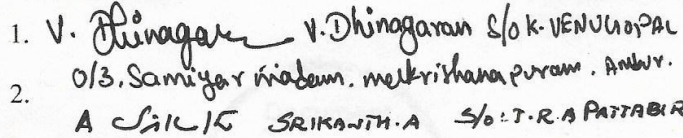 1. V. Dhinagar V. Dhinagaran S/o K. VENUGOPAL
O/3, Samiyar madam, melkrishanapuram, Ambur.
2.
A SRIKANTH.A S/o: T.R.A PATTABIR